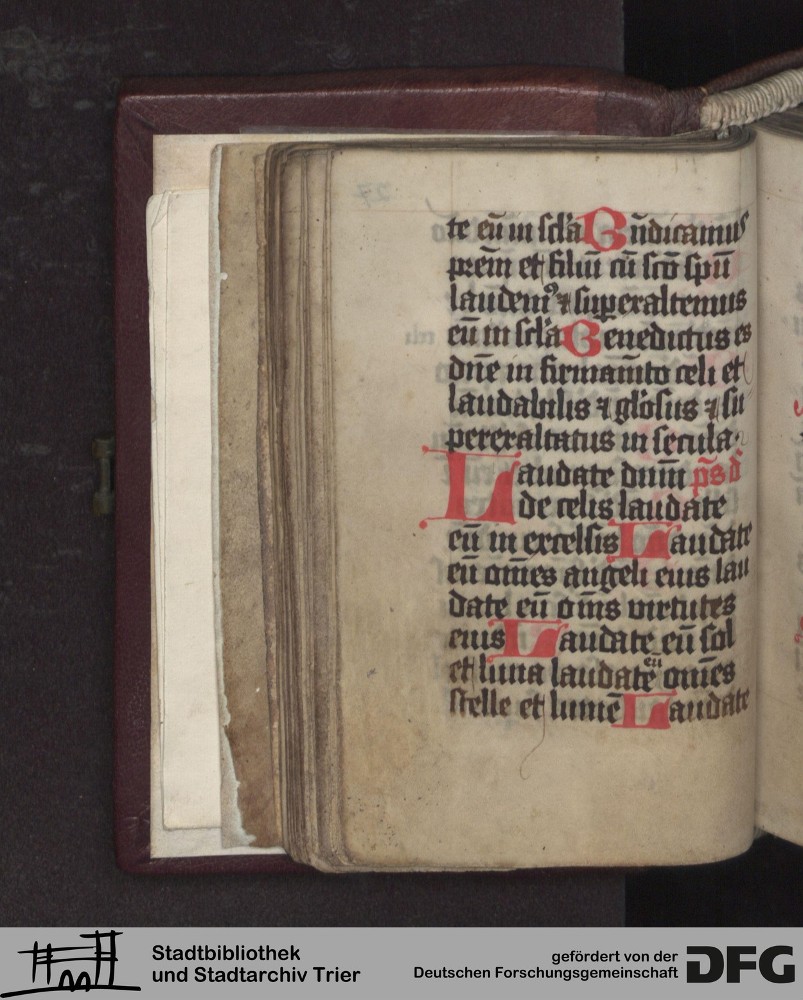 te eū in scl'a Bn̄dicamus
prem̄ et filiū cū sc̄o sp̄u
laudem⁹ ⁊ superaltemus
eū in scl'a Benedictus es
dn̄e in firmam̄to celi et
laudabilis ⁊ gl'osus ⁊ su
perexaltatus in secula.
Laudate dnm̄ p̄s d
de celis laudate
eū in excelsis Laudate
eū om̄es angeli eius lau
date eū om̄s virtutes
eius Laudate eū sol
et luna laudate eū om̄es
stelle et lumē Laudate
Stadtbibliothek
und Stadtarchiv Trier
gefördert von der
Deutschen Forschungsgemeinschaft
DFG